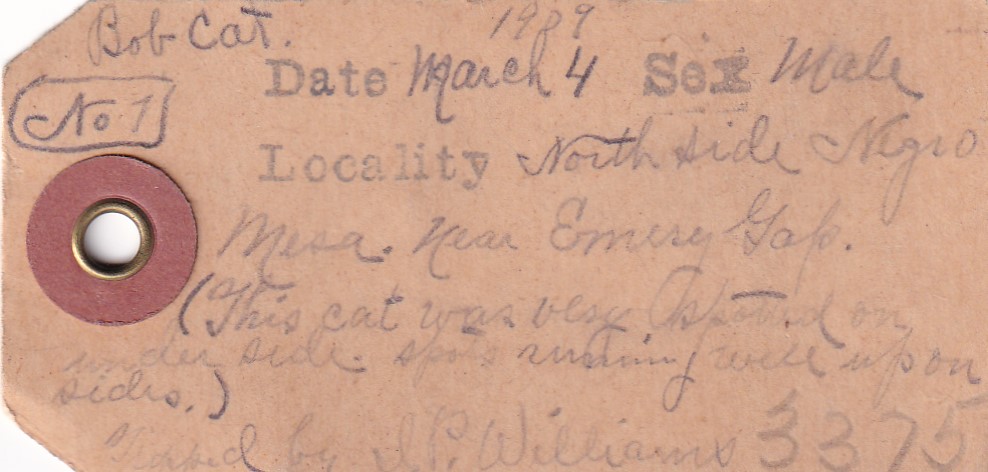 Bob Cat. 1939
No 1
Date March 4 Sex Male
Locality North side Negro
Mesa. Near Emery Gap.
(This cat was very spotted on
under side. spots running well up on
sides.)
by J.P. Williams 3375